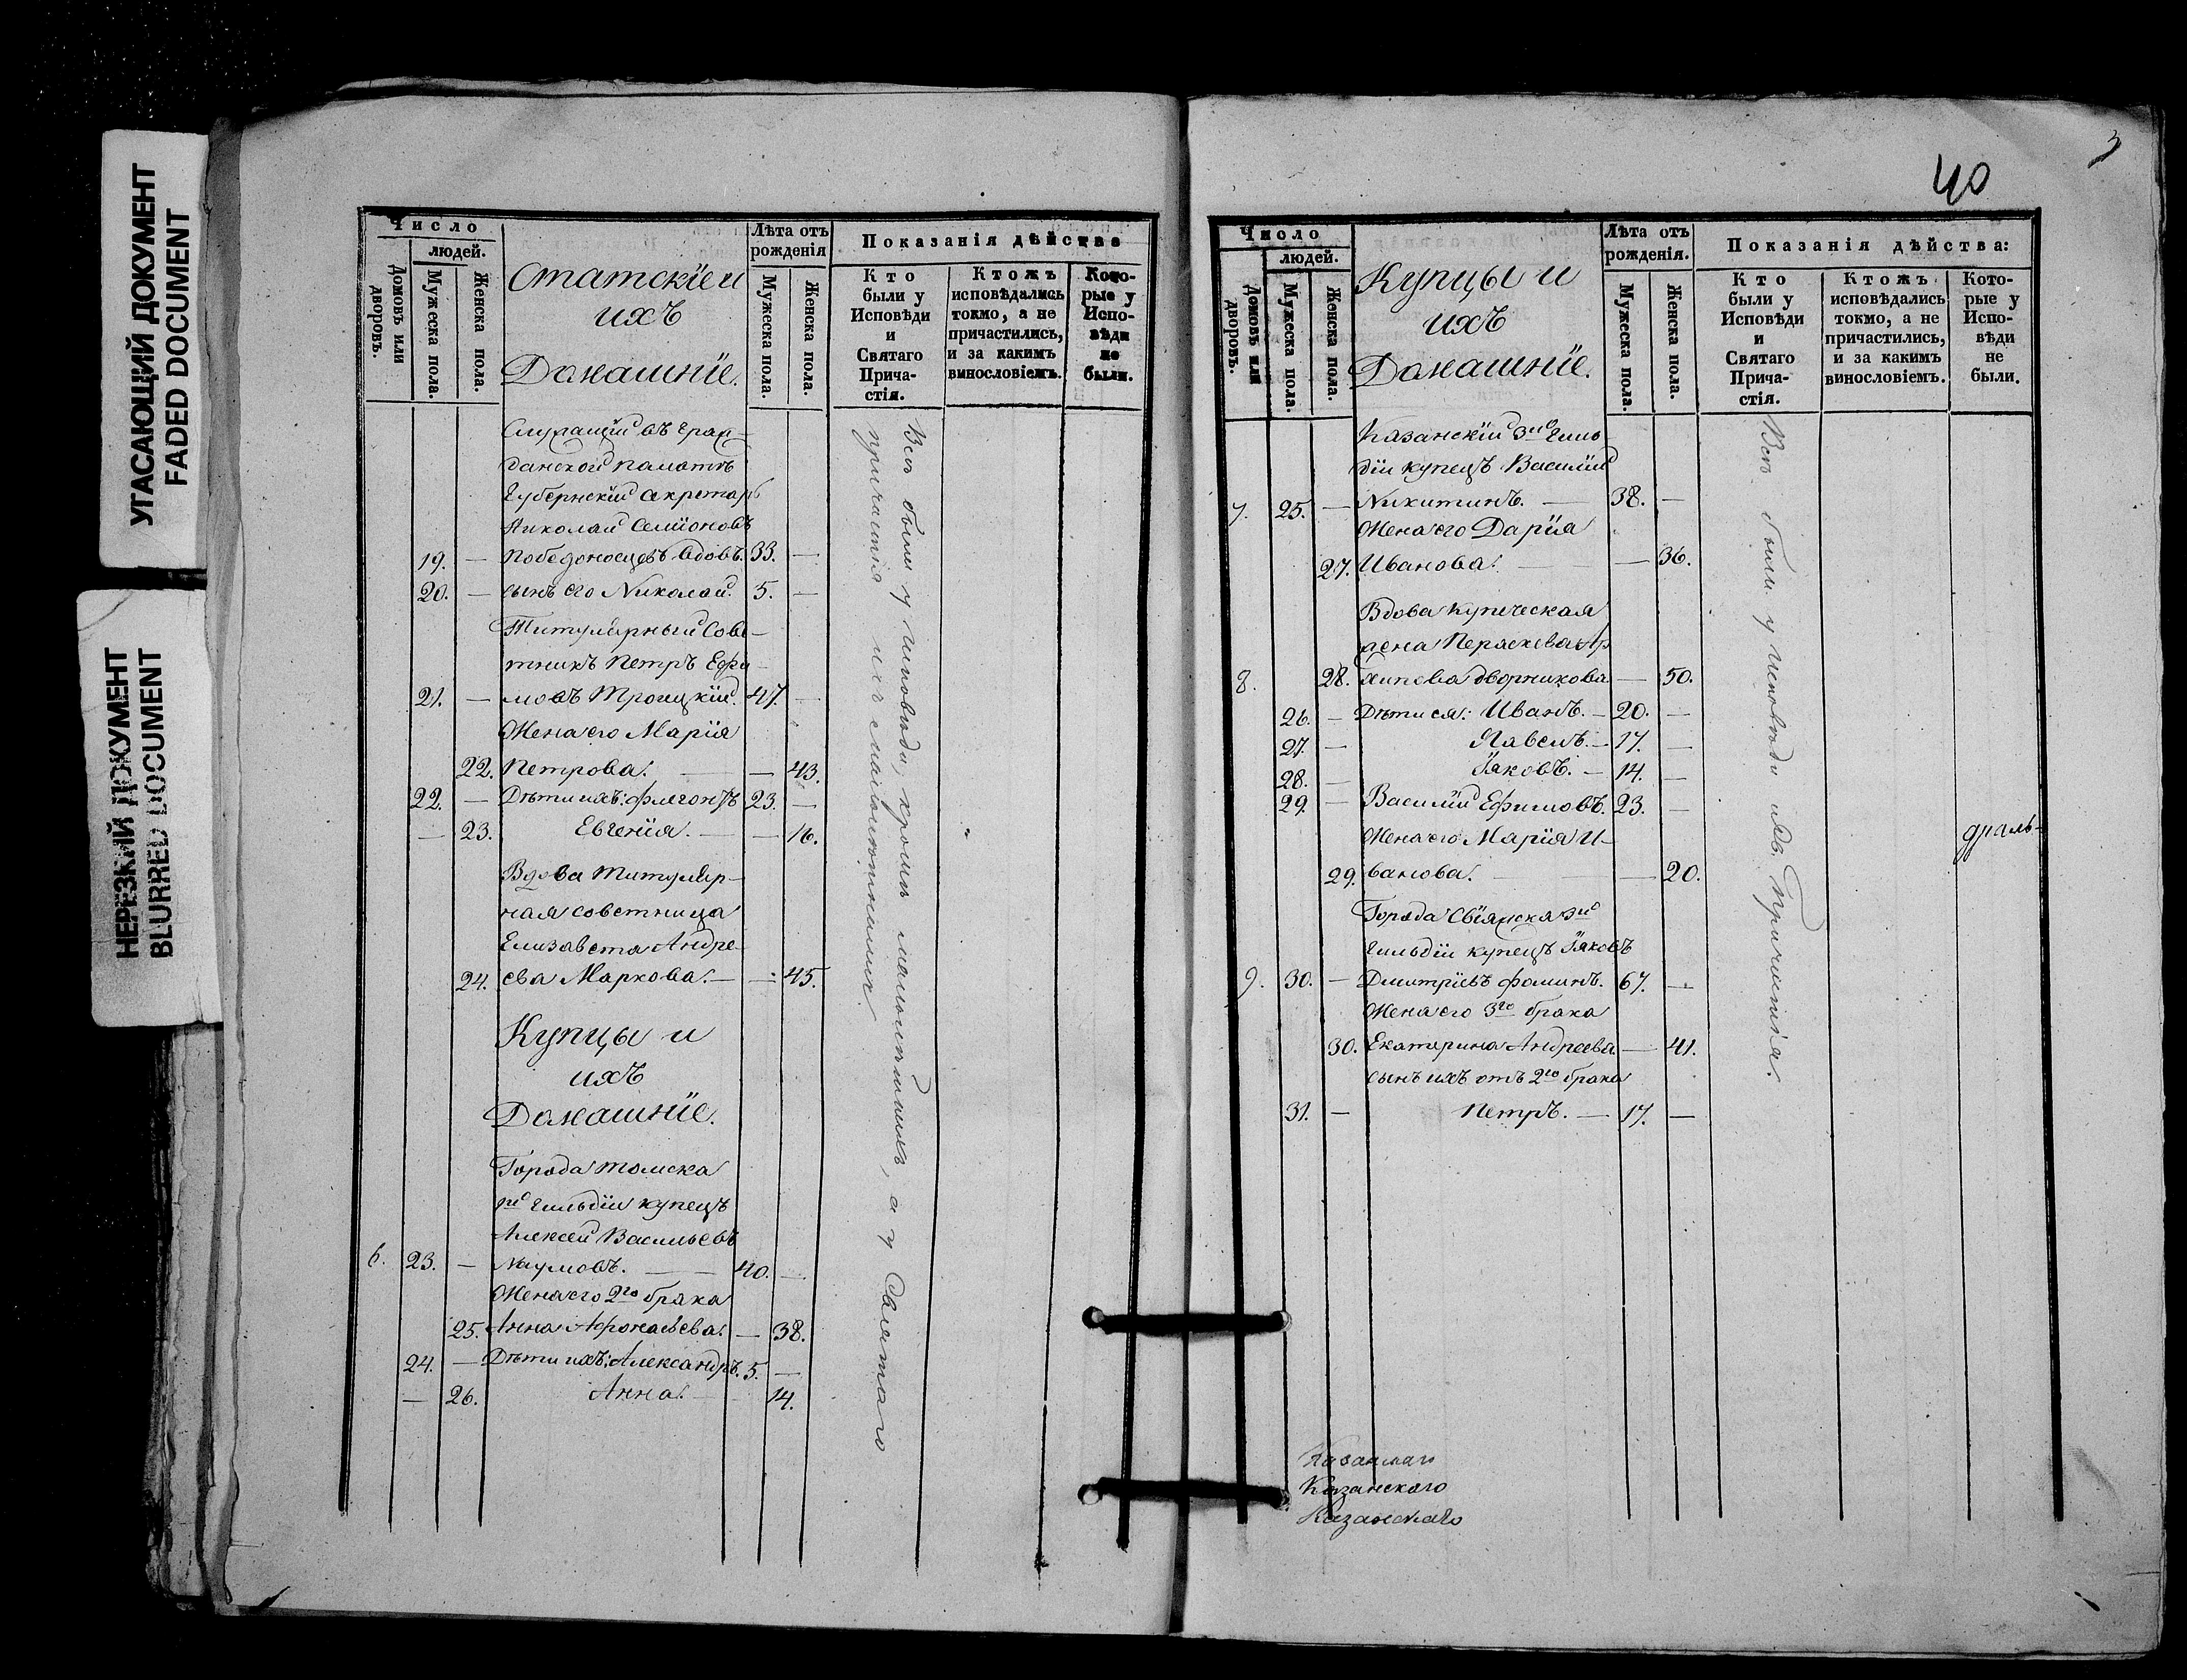 УГАСАЮЩИЙ ДОКУМЕНТ
FADED DOCUMENT
НЕРЕЗКИЙ ДОКУМЕНТ
BLURRED DOCUMENT
Число
людей.
Домовъ или дворовъ.
Мужеска пола.
Женска пола.
Статскіе и
ихъ
Домашніе.
Лѣта отъ рожденія
Мужеска пола.
Женска пола.
Показанія дѣйства
Кто были у Исповѣди и Святаго Прича-стія.
Ктожъ исповѣдались токмо, а не причастились, и за какимъ винословіемъ.
Кото-рые у Испо-вѣди не были.
Служащій въ Граж-
данской палатѣ
Губернскій секретарь
Николай Семіоновъ
19. — Победоносцевъ вдовъ. 33. —
20. — сынъ его Николай. 5. —
Титулярный Сове-
тникъ Петръ Ефи-
21. — мовъ Троицкій. 47. —
Жена его Марія
22. Петрова. — — 43.
22. — Дѣти ихъ: Флегонтъ 23. —
— 23. Евгенія. — — 16.
Вдова Титуляр-
ная советница
Елизавета Андре-
24. ева Маркова. — — 45.
Купцы и
ихъ
Домашніе.
Города Томска
гильдіи купецъ
Алексей Васильевъ
6. 23. — Наумовъ. — 40. —
Жена его 2го брака
25. Анна Афонасьева. — 38.
24. — Дѣти ихъ: Александръ. 5. —
— 26. Анна. — 14.
Всѣ были у исповѣди, кромѣ малолѣтнихъ, а у Святаго
причастія и съ малолѣтними
40
3
Число
людей.
Домовъ или дворовъ.
Мужеска пола.
Женска пола.
Купцы и
ихъ
Домашніе.
Лѣта отъ рожденія.
Мужеска пола.
Женска пола.
Показанія дѣйства:
Кто были у Исповѣди и Святаго Прича-стія.
Ктожъ исповѣдались токмо, а не причастились, и за какимъ винословіемъ.
Кото-рые у Испо-вѣди не были.
Казанскій 3й Гиль-
діи купецъ Василій
7. 25. — Никитинъ. — 38. —
Жена его Дарія
27. Иванова. — — 36.
Вдова купеческая
жена Перасковья Ар
8. 28. хипова Дворникова — 50.
26. — Дѣти ея: Иванъ. — 20. —
27. — Павелъ. — 17. —
28. — Іаковъ. — 14. —
29. — Василій Ефимовъ. 23. —
Жена его Марія И-
29. ванова. — — 20.
Города Свіяжска 3й
Гильдіи купецъ Іаковъ
9. 30. — Дмитріевъ Фоминъ. 67. —
Жена его 3го брака
30. Екатерина Андреева. — 41.
сынъ ихъ отъ 2го брака
31. — Петръ. — 17. —
Всѣ были у исповѣди и Св. Причастія.
драль-
Казанскаго
Казанскаго